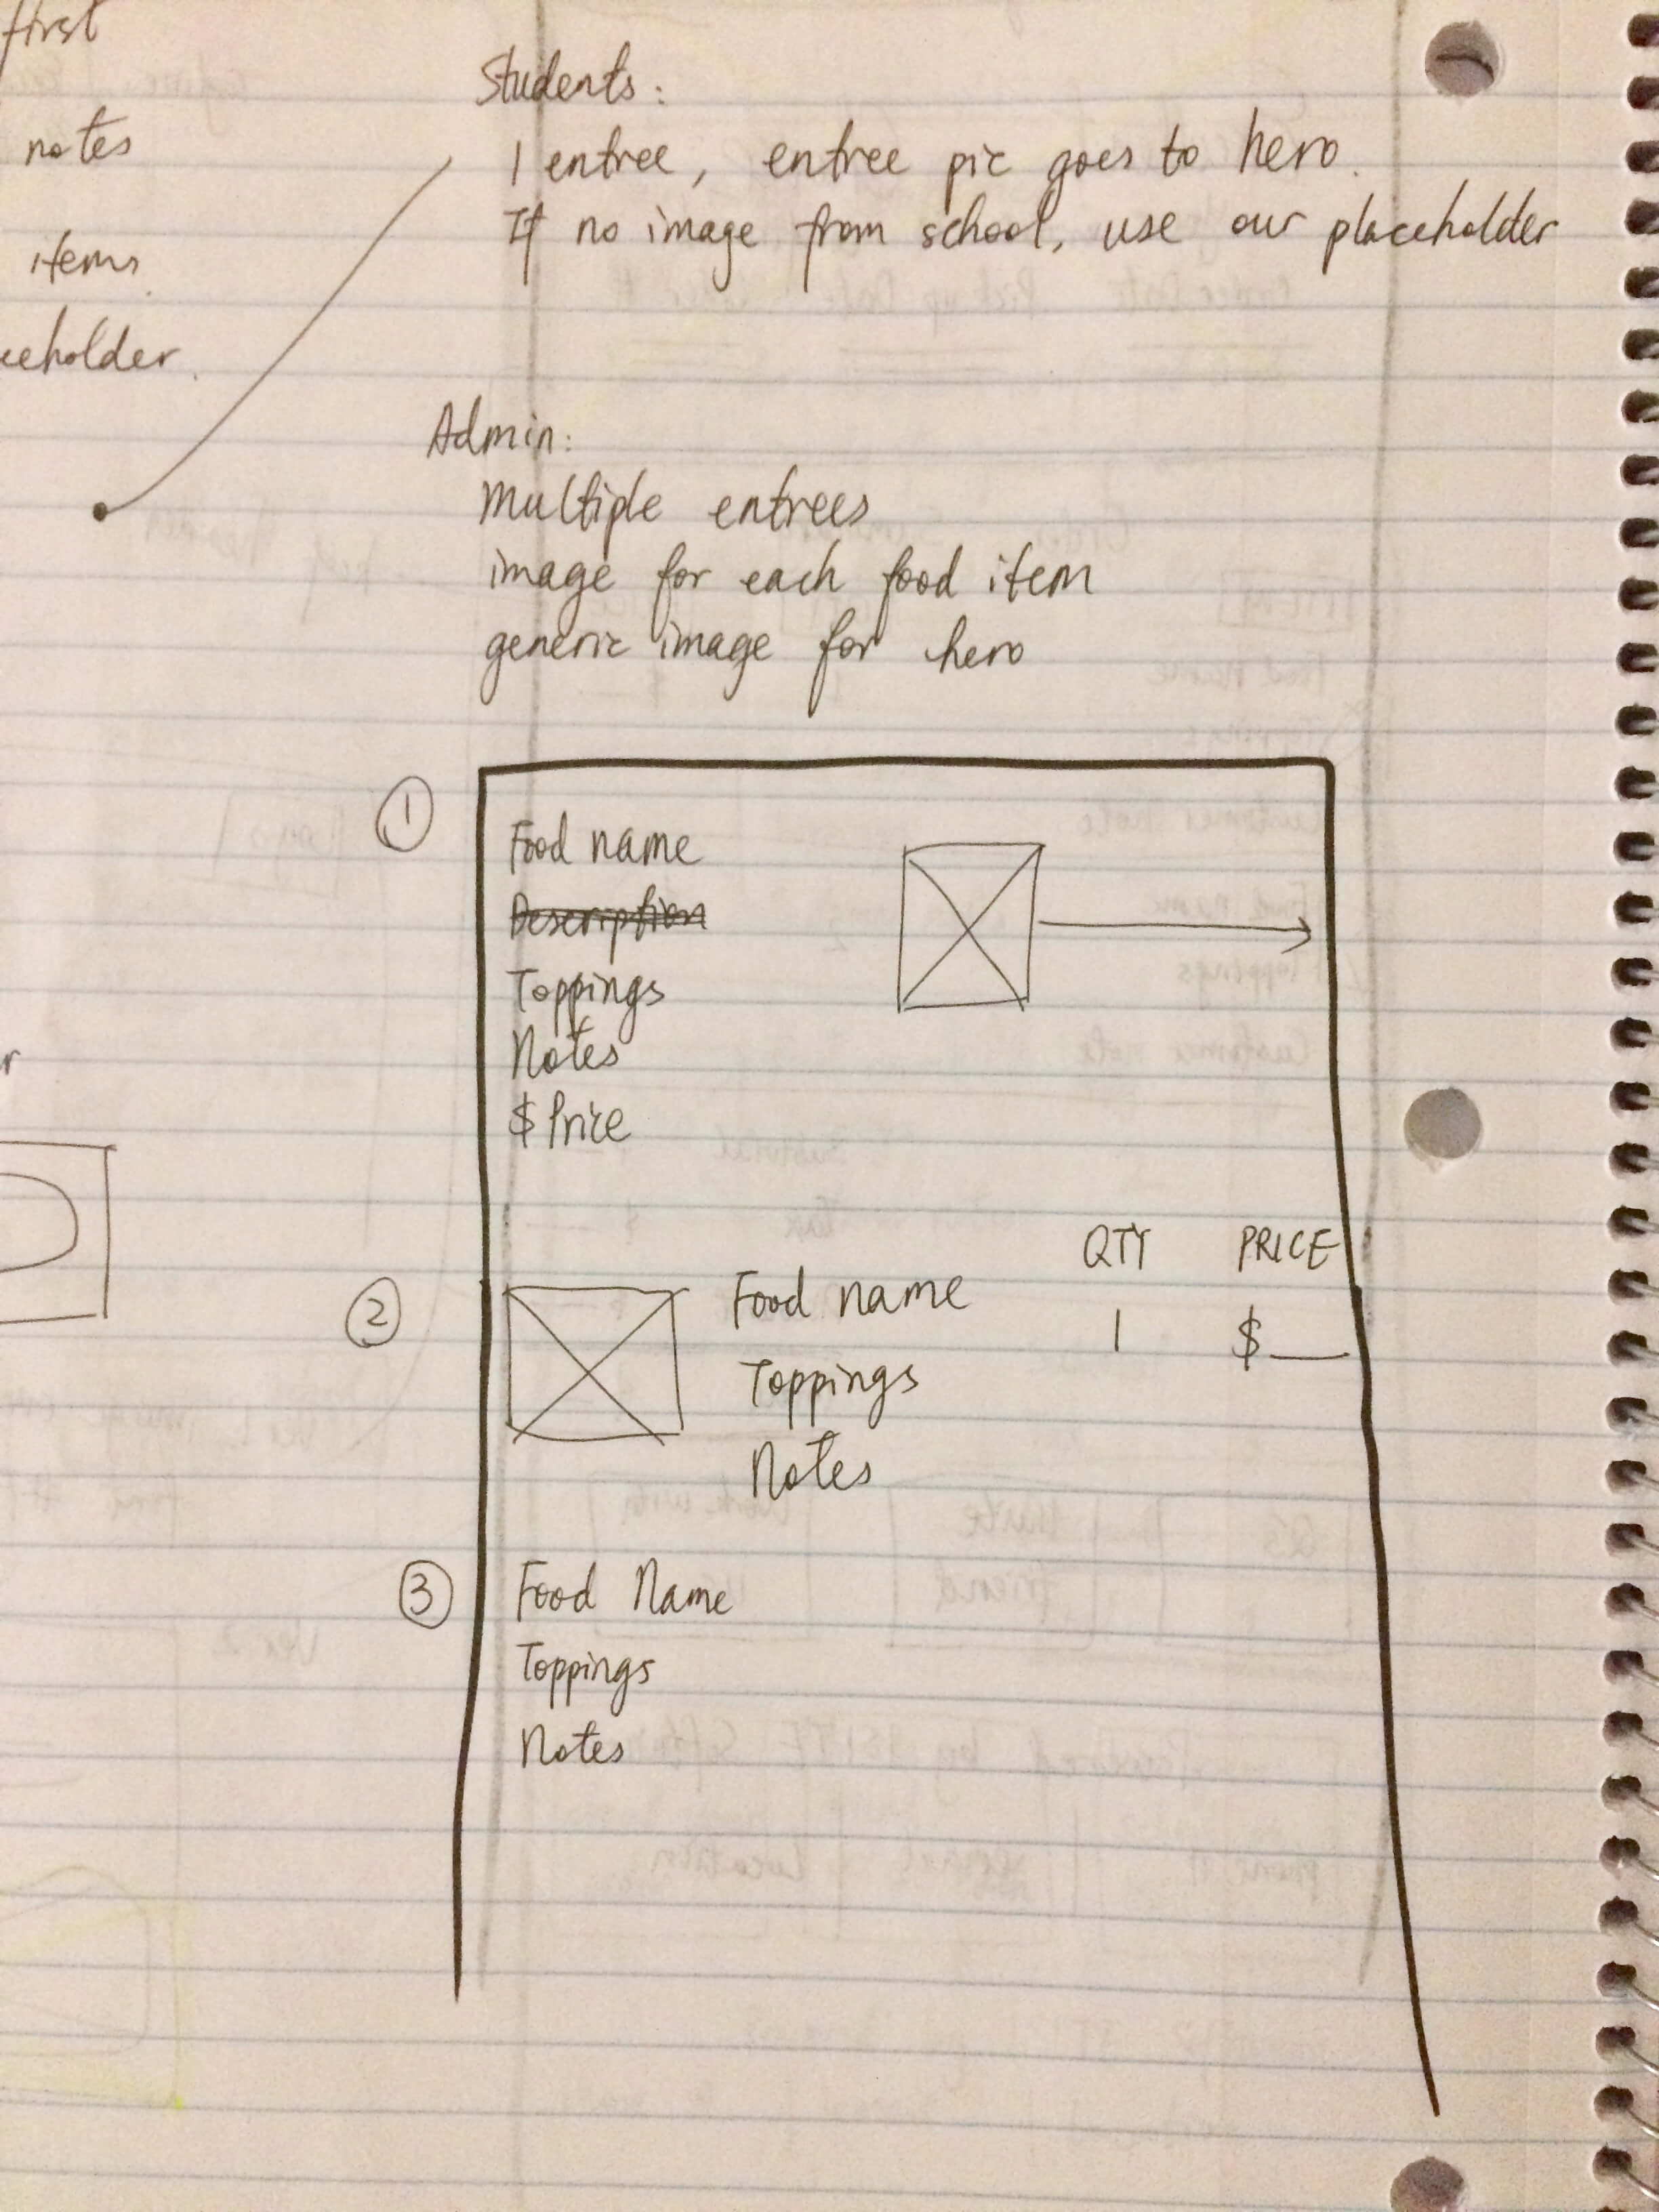 first
notes
items
ceholder.
Students:
1 entree, entree pic goes to hero.
If no image from school, use our placeholder
Admin:
Multiple entrees
image for each food item
generic image for hero
1
Food name
Description
Toppings
Notes
$ Price
QTY PRICE
2
Food name 1 $__
Toppings
Notes
3
Food Name
Toppings
Notes